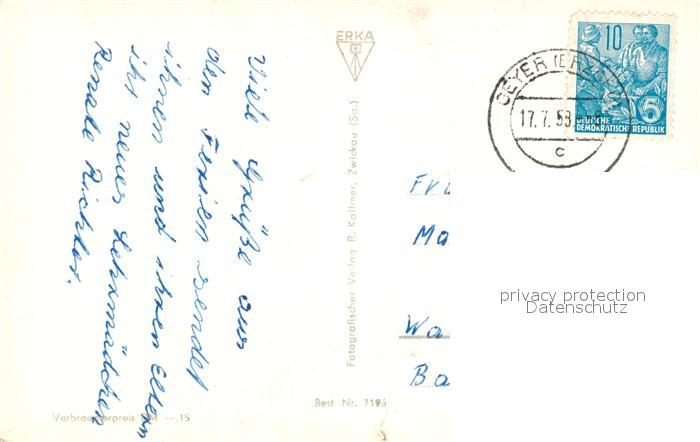 Viele Grüße aus
den Ferien sendet
ihnen und ihren Eltern
ihr neues Lehrmädchen
Renate Richter.
ERKA
Fotografischer Verlag R. Kallmer, Zwickau (Sa.)
Best.-Nr. 7196
Verbraucherpreis DM —,15
GEYER (ERZGEB)
17.7.58
c
10
5
DEUTSCHE
DEMOKRATISCHE REPUBLIK
Ma
Wa
Ba
privacy protection
Datenschutz